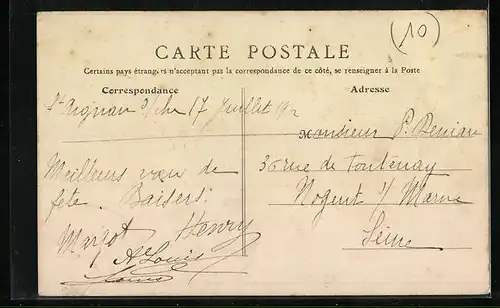 (10)
CARTE POSTALE
Certains pays étrangers n'acceptant pas la correspondance de ce côté, se renseigner à la Poste
Correspondance
Adresse
St Aignan s/cher 17 Juillet
Monsieur P.
Meilleurs vœux de
fête. Baisers.
Margot Henry
Louis
36 rue de Fontenay
Nogent s/ Marne
Seine